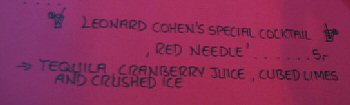 LEONARD COHEN'S SPECIAL COCKTAIL
, RED NEEDLE' . . . . . . . 5,-
→ TEQUILA, CRANBERRY JUICE, CUBED LIMES
AND CRUSHED ICE